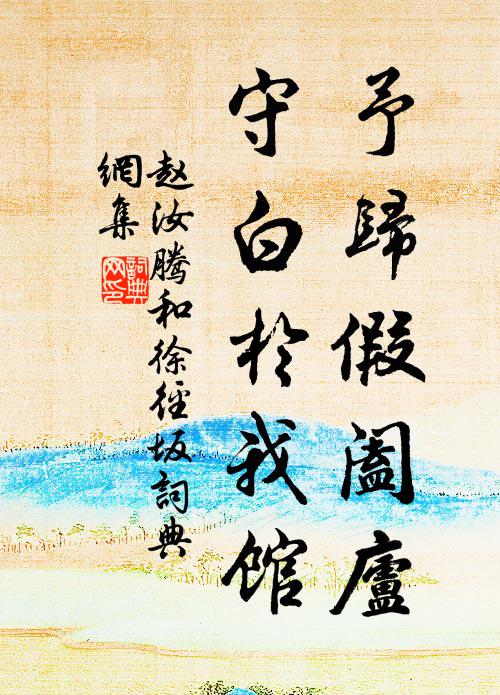 予歸假盍廬
守白於我館
赵汝騰和徐徑坂詞典
網集
詞典网印